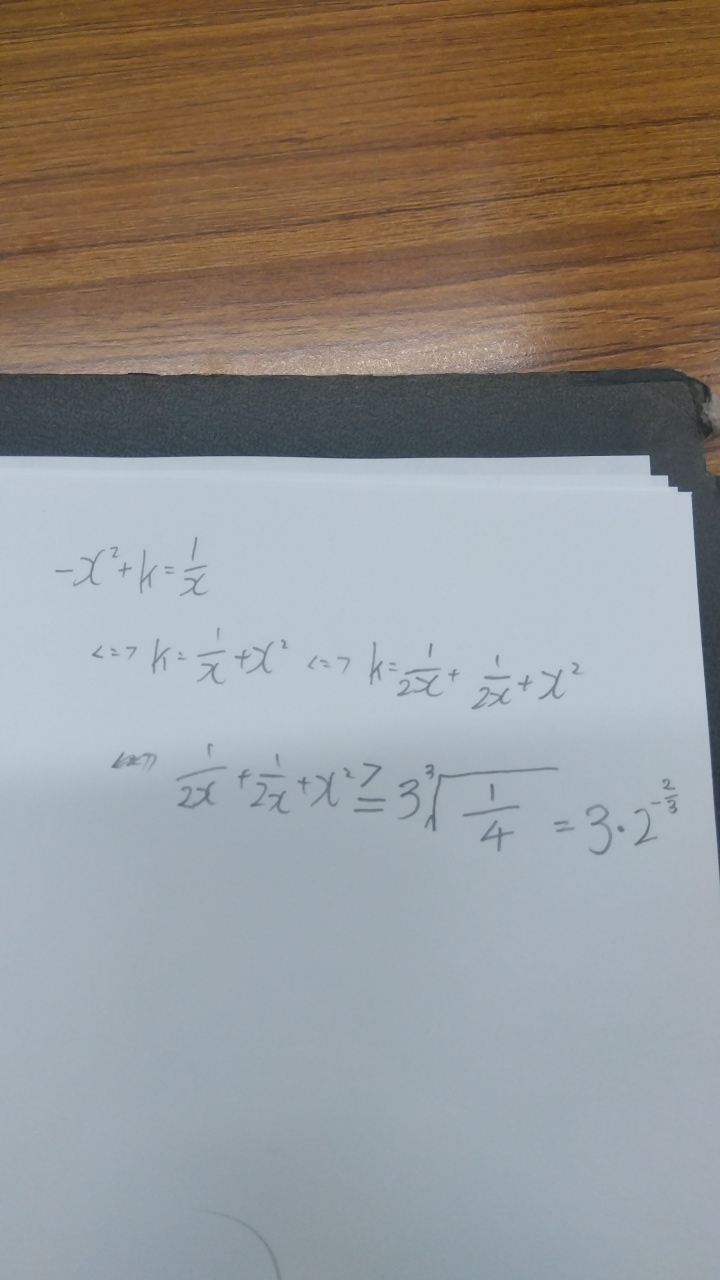 -x²+k=1/x
<=> k=1/x+x² <=> k=1/2x+1/2x+x²
1/2x+1/2x+x²≥3∛(1/4)=3·2^(-2/3)